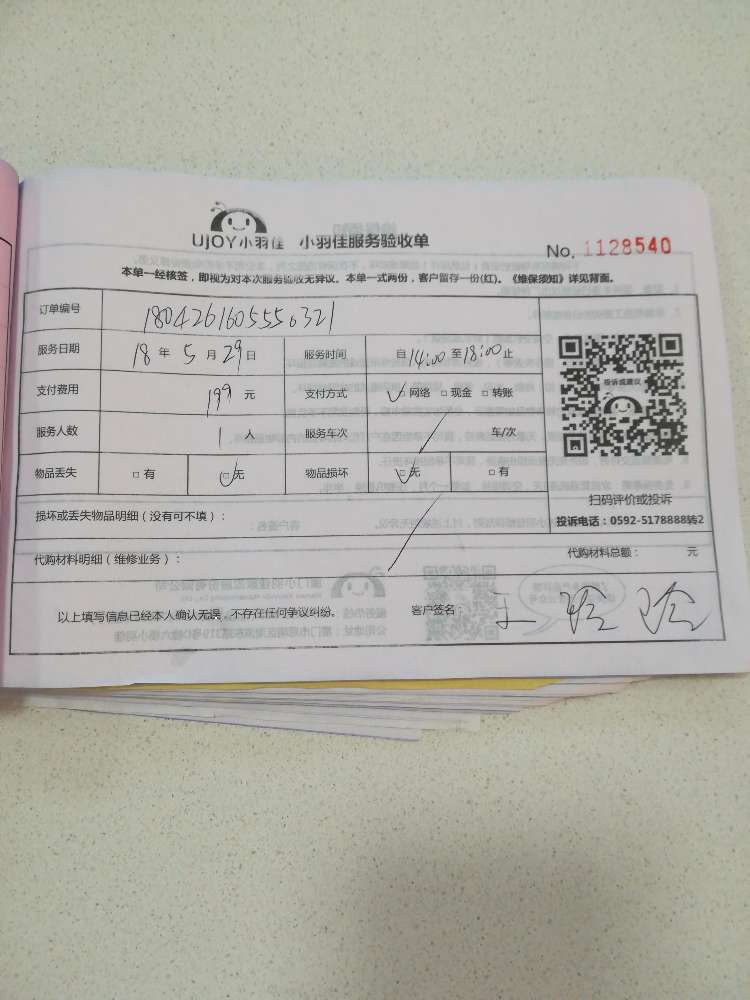 UJOY小羽佳 小羽佳服务验收单
No. 1128540
本单一经核签，即视为对本次服务验收无异议。本单一式两份，客户留存一份(红)。《维保须知》详见背面。
订单编号 1804261605550321
服务日期 18年5月29日 服务时间 自14:00至18:00止
支付费用 199元 支付方式 ✓□网络 □现金 □转账
服务人数 1人 服务车次 车/次
物品丢失 □有 ✓□无 物品损坏 ✓□无 □有
投诉或建议
扫码评价或投诉
投诉电话：0592-5178888转2
损坏或丢失物品明细（没有可不填）：
代购材料明细（维修业务）： 代购材料总额： 元
以上填写信息已经本人确认无误，不存在任何争议纠纷。 客户签名： 王玲玲